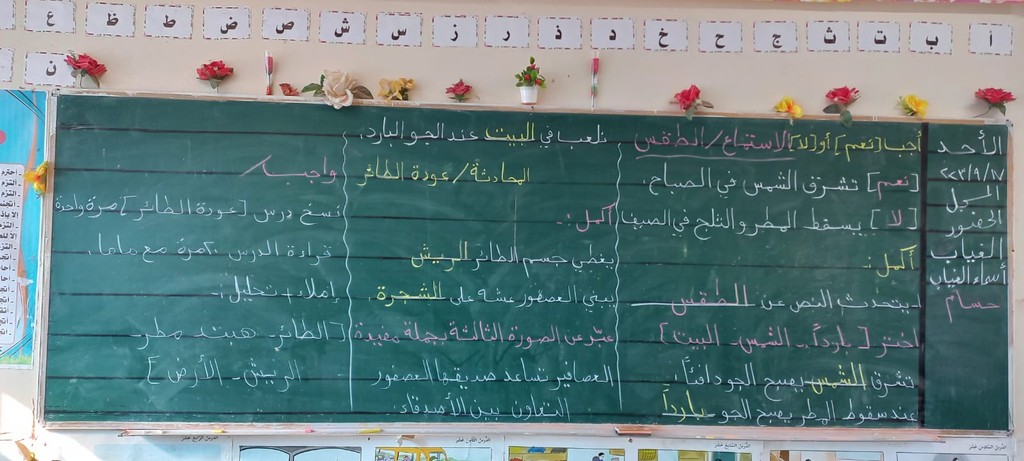 أ ب ت ث ج ح خ د ذ ر ز س ش ص ض ط ظ ع
ن
الأحد
٢٠٢٣/٩/١٧
السجل
الحضور
الغياب
أسماء الغياب
حسام
أجب [نعم] أو [لا] الاستماع/الطقس
[نعم] تشرق الشمس في الصباح.
[لا] يسقط المطر والثلج في الصيف
أكمل:
يتحدث النص عن الطقس
اختر [بارداً - الشمس - البيت]
تشرق الشمس يصبح الجو دافئاً.
عند سقوط المطر يصبح الجو بارداً
نلعب في البيت عند الجو البارد.
المحادثة/عودة الطائر
أكمل:
يغطي جسم الطائر الريش
يبني العصفور عشه على الشجرة.
عبّر عن الصورة الثالثة بجملة مفيدة
العصافير تساعد صديقها العصفور
التعاون بين الأصدقاء.
واجب
نسخ درس [عودة الطائر] مرة واحدة
قراءة الدرس مع ماما.
إملاء + تحليل:
[الطائر - هبت - مطر
الريش - الأرض]